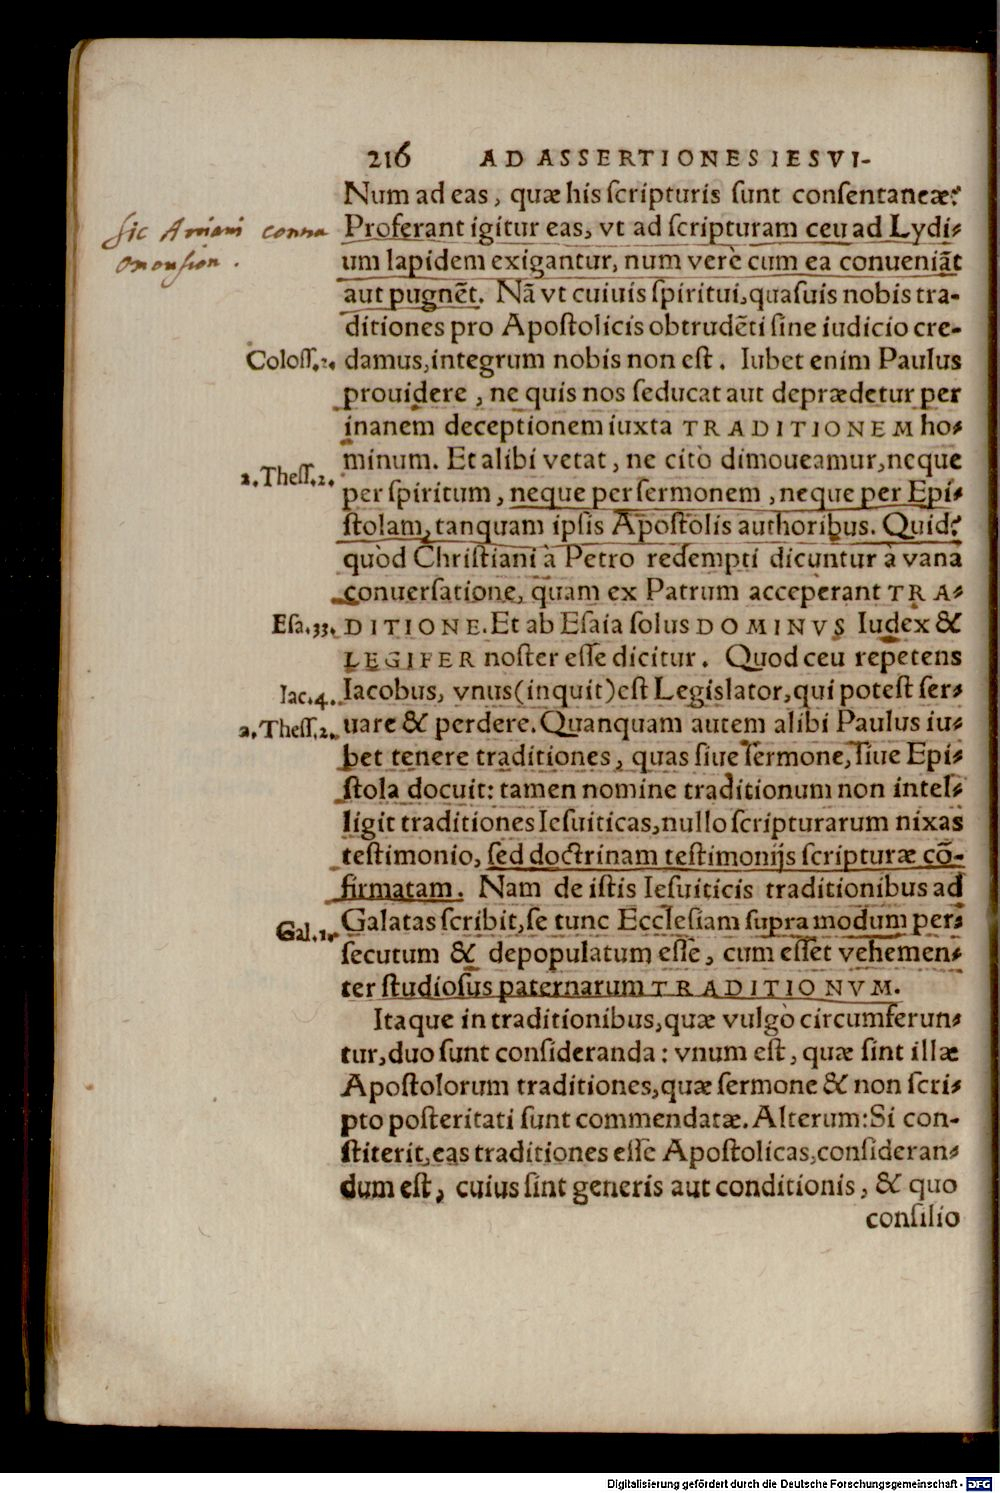 216 AD ASSERTIONES IESVI-
Num ad eas, quæ his ſcripturis ſunt conſentaneæ?
Sic Arriani contra
Proferant igitur eas, vt ad ſcripturam ceu ad Lydi-
omousion.
um lapidem exigantur, num verè cum ea conueniãt
aut pugnẽt. Nã vt cuiuis ſpiritui, quaſuis nobis tra-
ditiones pro Apoſtolicis obtrudẽti ſine iudicio cre-
Coloſſ.2.
damus, integrum nobis non eſt. Iubet enim Paulus
prouidere, ne quis nos ſeducat aut deprædetur per
inanem deceptionem iuxta TRADITIONEM ho-
minum. Et alibi vetat, ne citò dimoueamur, neque
2.Theſſ.2.
per ſpiritum, neque per ſermonem, neque per Epi-
ſtolam, tanquam ipſis Apoſtolis authoribus. Quid?
quòd Chriſtiani à Petro redempti dicuntur à vana
conuerſatione, quam ex Patrum acceperant TRA-
Eſa.33.
DITIONE. Et ab Eſaia ſolus DOMINVS Iudex &
LEGIFER noſter eſſe dicitur. Quod ceu repetens
Iac.4.
Iacobus, vnus (inquit) eſt Legislator, qui poteſt ſer-
2.Theſſ.2.
uare & perdere. Quanquam autem alibi Paulus iu-
bet tenere traditiones, quas ſiue ſermone, ſiue Epi-
ſtola docuit: tamen nomine traditionum non intel-
ligit traditiones Ieſuiticas, nullo ſcripturarum nixas
teſtimonio, ſed doctrinam teſtimonijs ſcripturæ cõ-
firmatam. Nam de iſtis Ieſuiticis traditionibus ad
Gal.1.
Galatas ſcribit, ſe tunc Eccleſiam ſupra modum per-
ſecutum & depopulatum eſſe, cum eſſet vehemen-
ter ſtudioſus paternarum TRADITIONVM.
Itaque in traditionibus, quæ vulgò circumferun-
tur, duo ſunt conſideranda: vnum eſt, quæ ſint illæ
Apoſtolorum traditiones, quæ ſermone & non ſcri-
pto poſteritati ſunt commendatæ. Alterum: Si con-
ſtiterit, eas traditiones eſſe Apoſtolicas, conſideran-
dum eſt, cuius ſint generis aut conditionis, & quo
conſilio
Digitalisierung gefördert durch die Deutsche Forschungsgemeinschaft - DFG